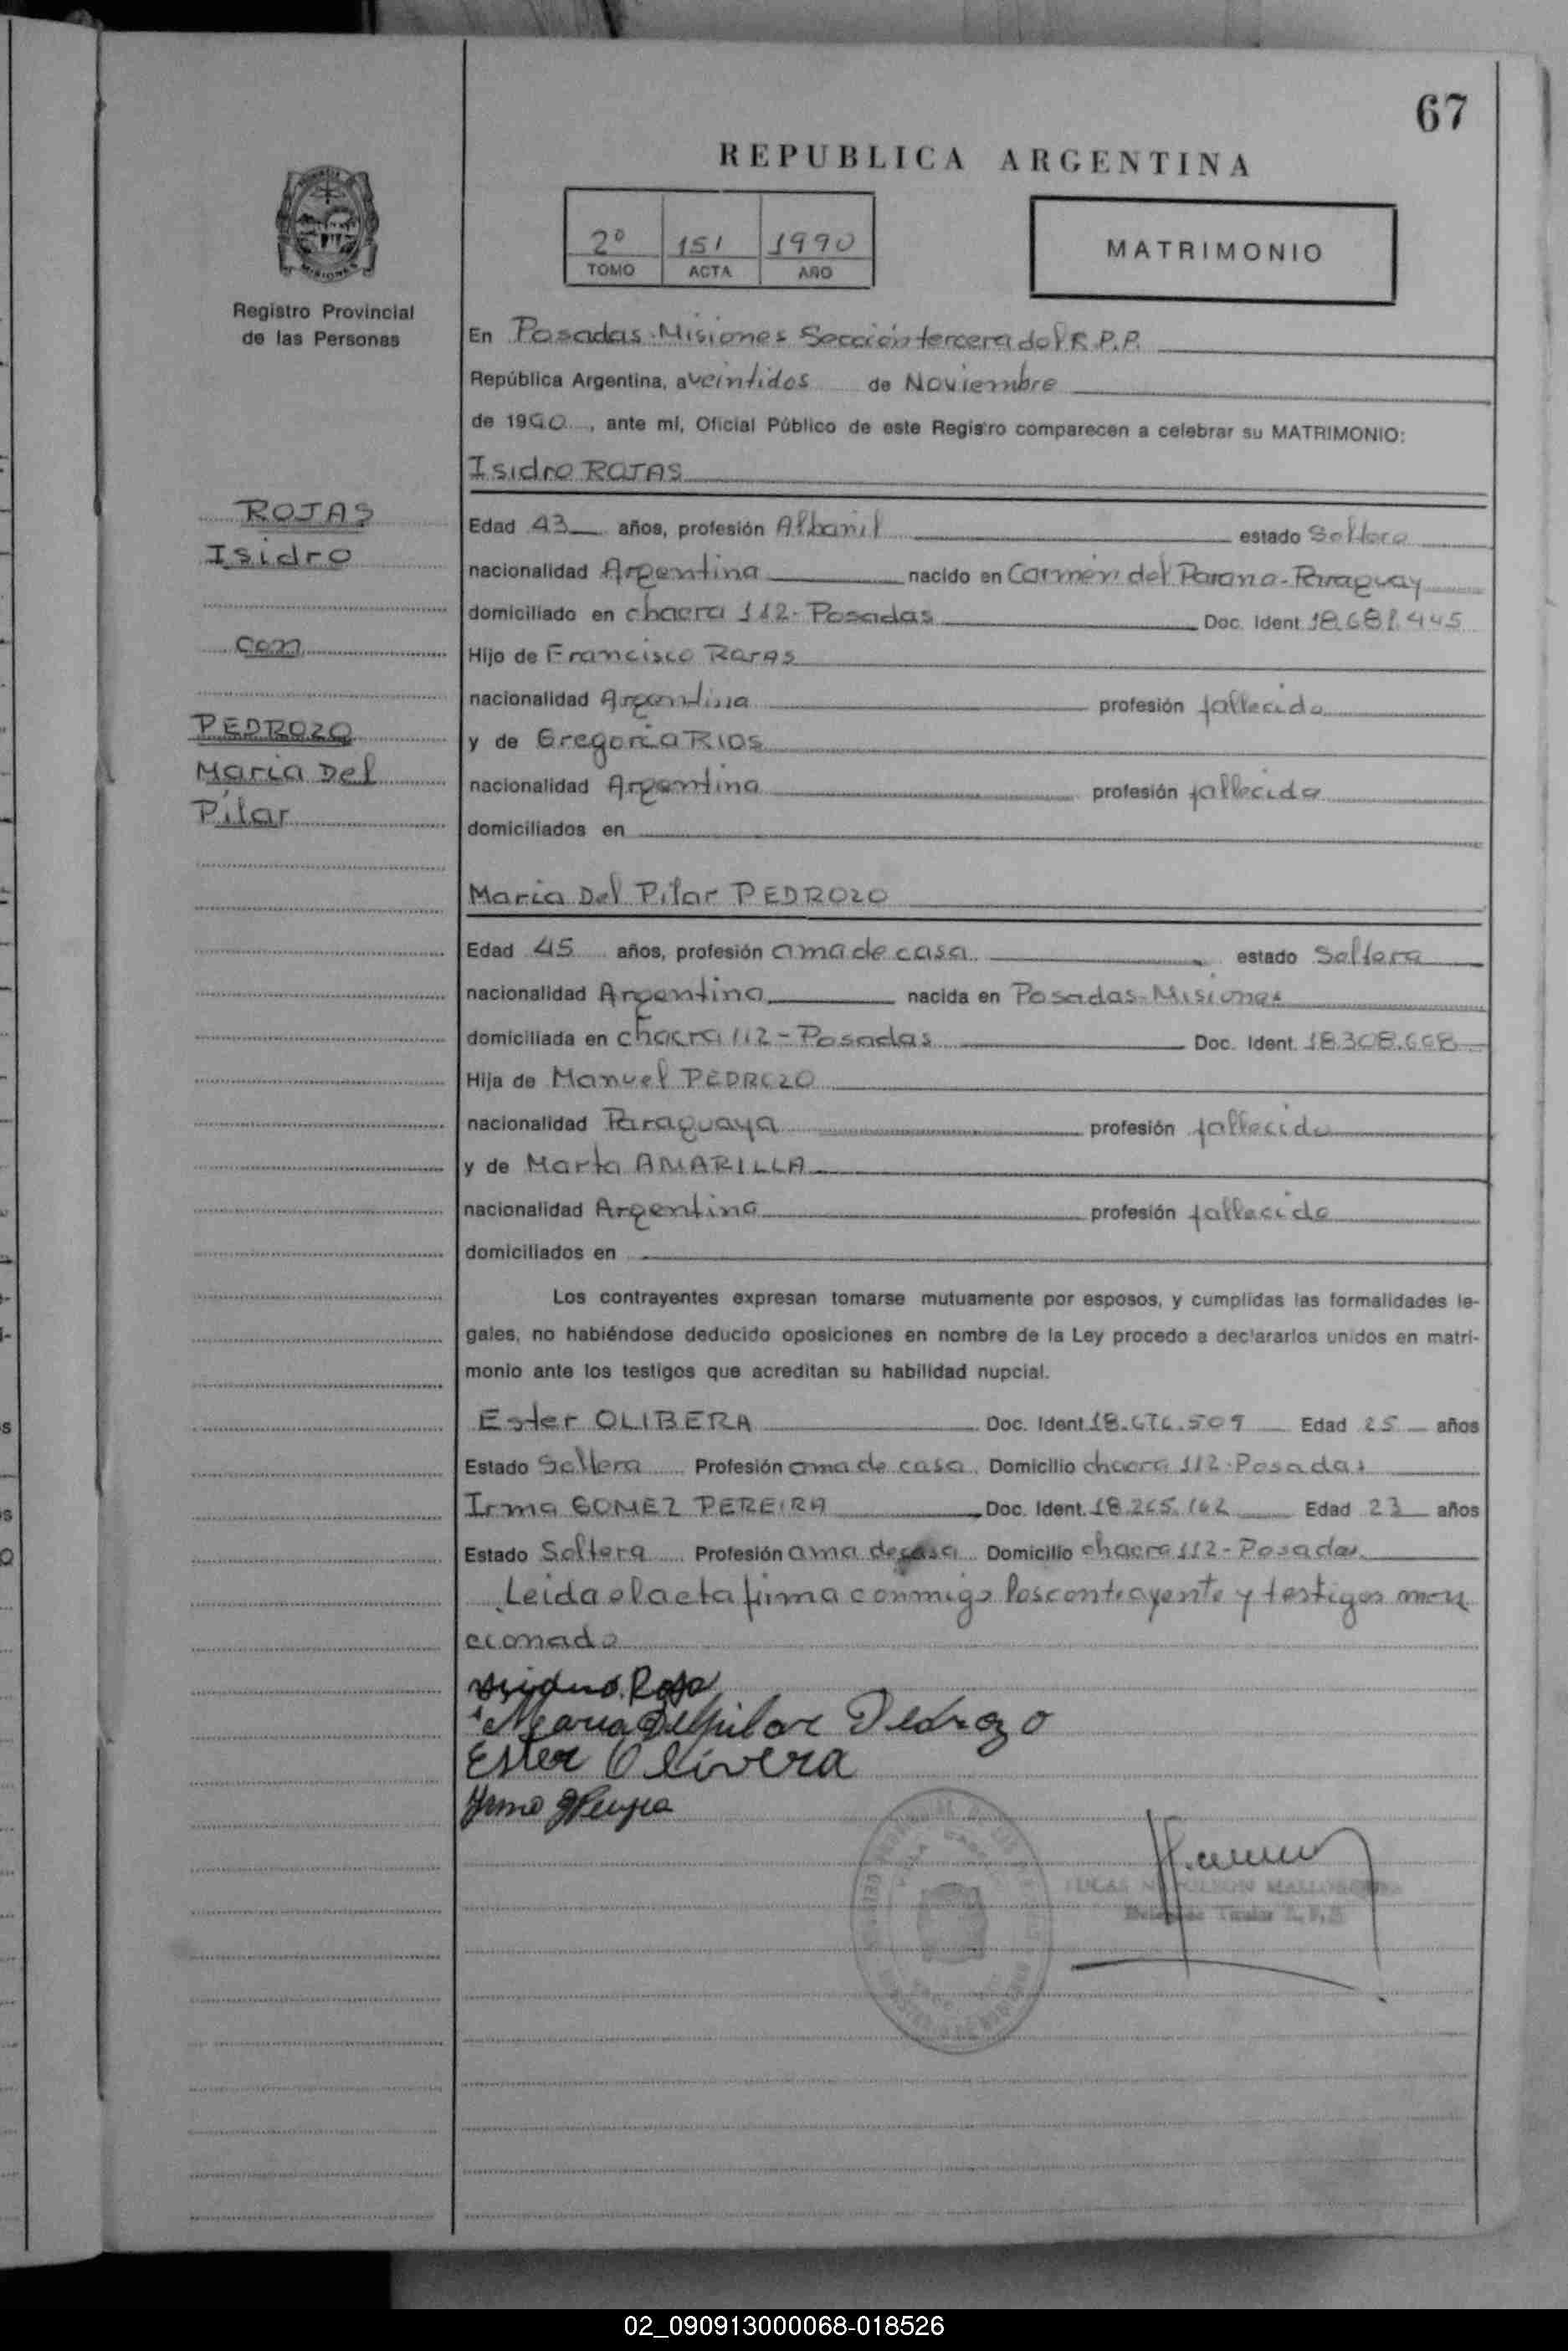 67
REPUBLICA ARGENTINA
2º 151 1990
TOMO ACTA AÑO
MATRIMONIO
MISIONES
Registro Provincial
de las Personas
ROJAS
Isidro
con
PEDROZO
Maria Del
Pilar
En Posadas-Misiones Sección tercera del R.P.P.
República Argentina, a veintidos de Noviembre
de 1990, ante mí, Oficial Público de este Registro comparecen a celebrar su MATRIMONIO:
Isidro ROJAS
Edad 43 años, profesión Albañil estado Soltero
nacionalidad Argentina nacido en Carmen del Parana-Paraguay
domiciliado en chacra 112-Posadas Doc. Ident 18.681.445
Hijo de Francisco
nacionalidad Argentina profesión fallecido
y de Gregoria RIOS
nacionalidad Argentina profesión fallecida
domiciliados en
Maria Del Pilar PEDROZO
Edad 45 años, profesión ama de casa estado Soltera
nacionalidad Argentina nacida en Posadas-Misiones
domiciliada en chacra 112-Posadas Doc. Ident.
Hija de Manuel PEDROZO
nacionalidad Paraguaya profesión fallecido
y de Marta AMARILLA
nacionalidad Argentina profesión fallecida
domiciliados en
Los contrayentes expresan tomarse mutuamente por esposos, y cumplidas las formalidades le-
gales, no habiéndose deducido oposiciones en nombre de la Ley procedo a declararlos unidos en matri-
monio ante los testigos que acreditan su habilidad nupcial.
Ester OLIBERA Doc. Ident Edad 25 años
Estado Soltera Profesión ama de casa Domicilio chacra 112-Posadas
Irma GOMEZ PEREIRA Doc. Ident. 18.265.162 Edad 23 años
Estado Soltera Profesión ama de casa Domicilio chacra 112-Posadas
Leida el acta firma conmigo los contrayente y testigos men
cionado
Isidro Roja
Maria Del pilar Pedrozo
Ester Olivera
Irma
02_090913000068-018526